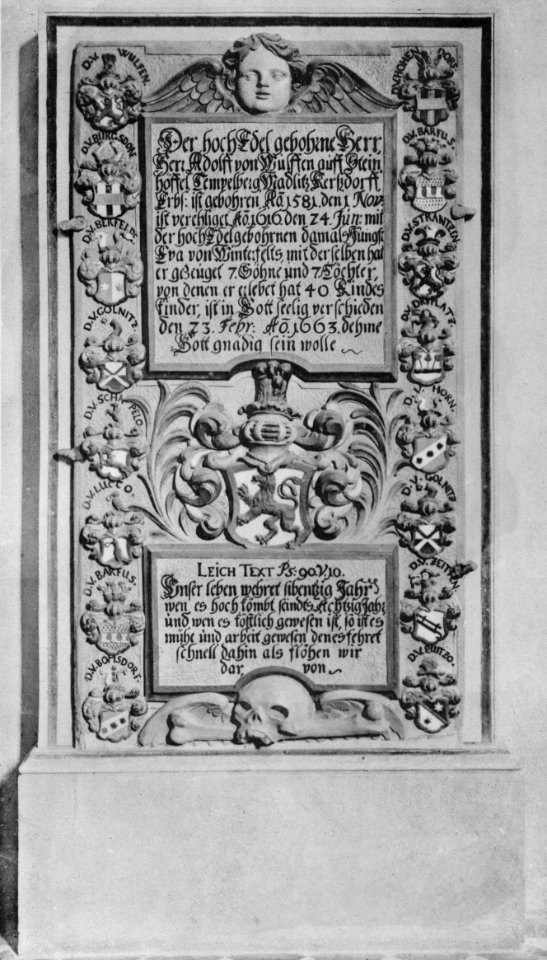 D.V. WULFEN.
D.V. BURGSDORF
D.V. BERFELDE
D.V. GÖLNITZ
D.V. SCHAPELO
D.V. LUCKO
D.V. BARFUS.
D.V. BOMSDORF
Der hoch Edel gebohrne Herr,
Herr Adolff von Wulffen auff Stein
hoffel Tempelberg Madlitz Kerßdorff,
Erbs: ist gebohren Aõ 1581. den 1 Nov:
ist verehliget Aõ 1616 den 24. Jun: mit
der hoch Edelgebohrnen damals Jungfr
Eva von Winterfelts, mit derselben hat
er gezeuget 7. Söhne und 7 Töchter,
von denen er erlebet hat 40 Kindes
kinder, ist in Gott seelig verschieden
den 23. Febr: Aõ 1663. dehme
Gott gnadig sein wolle
LEICH TEXT Ps: 90. V. 10.
Unser leben wehret sibentzig Jahr
wen es hoch kombt sünds Achtzig Jahr
und wen es köstlich gewesen ist, so ist es
mühe und arbeit gewesen denes fehret
schnell dahin als flöhen wir
dar von
D.V. HOHENDORF
D.V. BARFUS.
D.V. STRANTZEN
D.V.
D.V. HORN.
D.V. GÖLNITZ
D.V.
D.V.